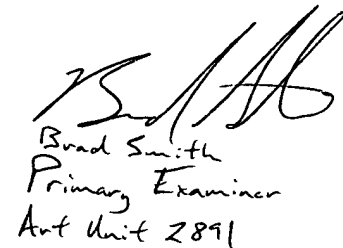 Brad Smith
Primary Examiner
Art Unit 2891